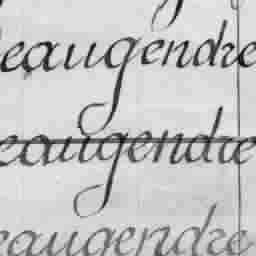 eaugendre
eaugendre
eaugendre